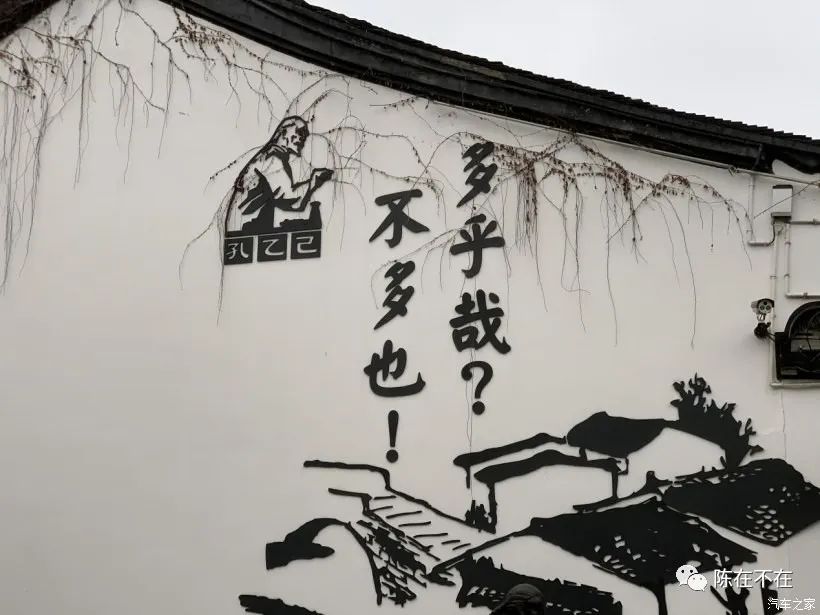 多乎哉？
不多也！
孔乙己
陈在不在
汽车之家